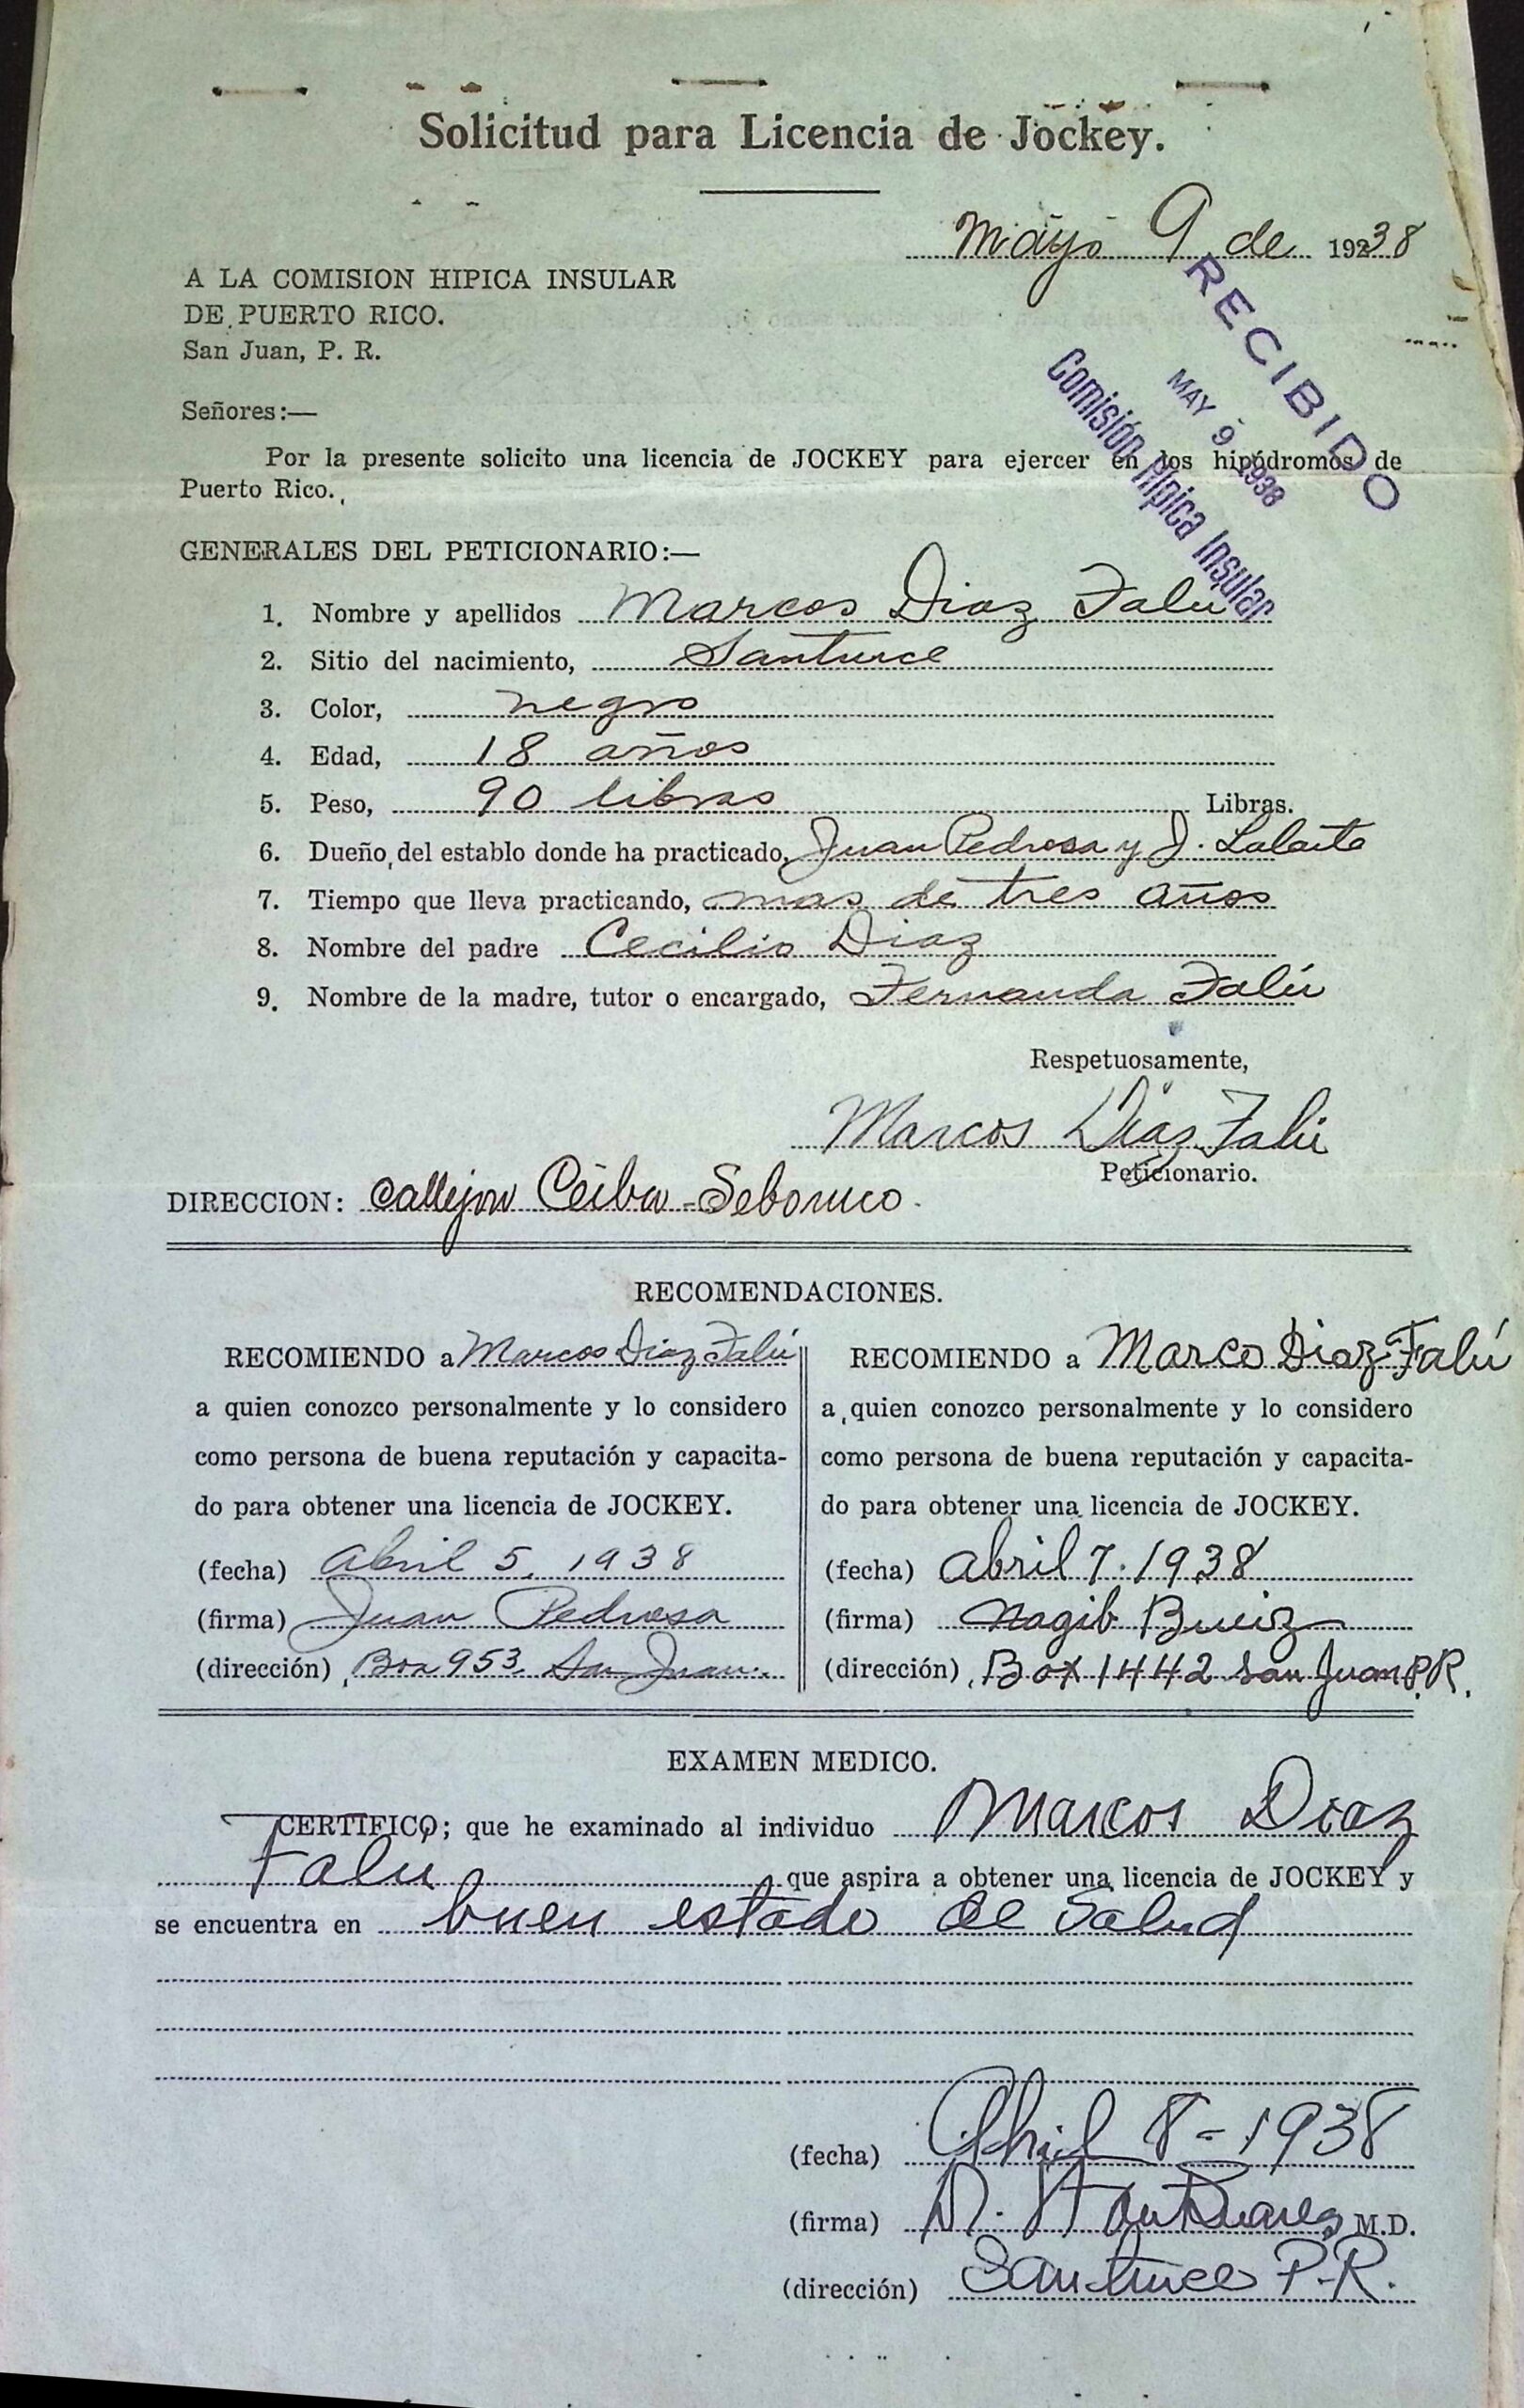 Solicitud para Licencia de Jockey.
Mayo 9 de 19238
A LA COMISION HIPICA INSULAR
DE PUERTO RICO.
San Juan, P. R.
RECIBIDO
MAY 9 1938
Comisión Hípica Insular
Señores:—
Por la presente solicito una licencia de JOCKEY para ejercer en los hipódromos de
Puerto Rico.
GENERALES DEL PETICIONARIO:—
1. Nombre y apellidos Marcos Diaz Falu
2. Sitio del nacimiento, Santurce
3. Color, negro
4. Edad, 18 años
5. Peso, 90 libras Libras.
6. Dueño del establo donde ha practicado, Juan Pedrosa y J.
7. Tiempo que lleva practicando, mas de tres años
8. Nombre del padre Cecilio Diaz
9. Nombre de la madre, tutor o encargado, Fernanda Falú
Respetuosamente,
Marcos Diaz Falú
Peticionario.
DIRECCION: Callejon Ceiba - Seboruco.
RECOMENDACIONES.
RECOMIENDO a Marcos Diaz Falú
a quien conozco personalmente y lo considero
como persona de buena reputación y capacita-
do para obtener una licencia de JOCKEY.
(fecha) Abril 5, 1938
(firma) Juan Pedrosa
(dirección) Box 953 San Juan.
RECOMIENDO a Marco Diaz Falú
a quien conozco personalmente y lo considero
como persona de buena reputación y capacita-
do para obtener una licencia de JOCKEY.
(fecha) abril 7. 1938
(firma) Nagib
(dirección) Box 1442 San Juan P.R.
EXAMEN MEDICO.
CERTIFICO; que he examinado al individuo Marcos Diaz
Falu que aspira a obtener una licencia de JOCKEY y
se encuentra en buen estado de Salud
(fecha) Abril 8 - 1938
(firma) M.D.
(dirección) Santurce P.R.